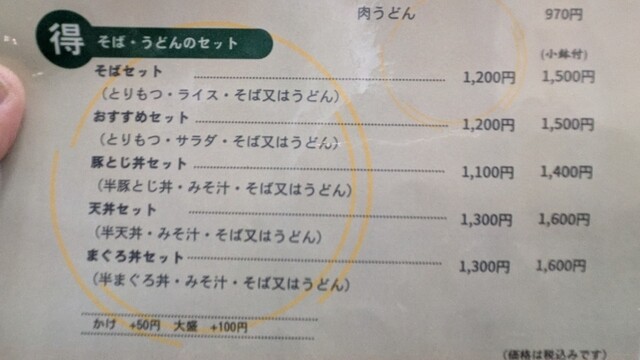 肉うどん 970円
得 そば・うどんのセット
(小鉢付)
そばセット 1,200円 1,500円
(とりもつ・ライス・そば又はうどん)
おすすめセット 1,200円 1,500円
(とりもつ・サラダ・そば又はうどん)
豚とじ丼セット 1,100円 1,400円
(半豚とじ丼・みそ汁・そば又はうどん)
天丼セット 1,300円 1,600円
(半天丼・みそ汁・そば又はうどん)
まぐろ丼セット 1,300円 1,600円
(半まぐろ丼・みそ汁・そば又はうどん)
かけ +50円 大盛 +100円
(価格は税込みです)